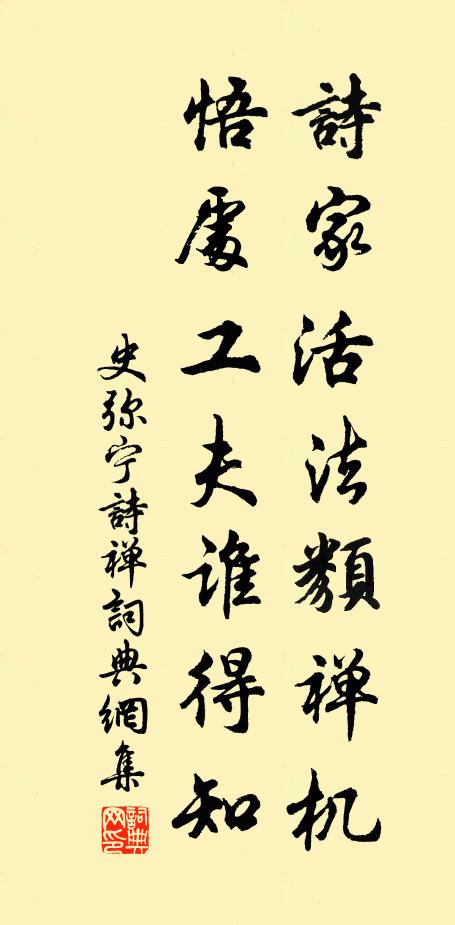 詩家活法類禅机
悟處工夫谁得知
史弥宁詩禅詞典網集
詞典网印